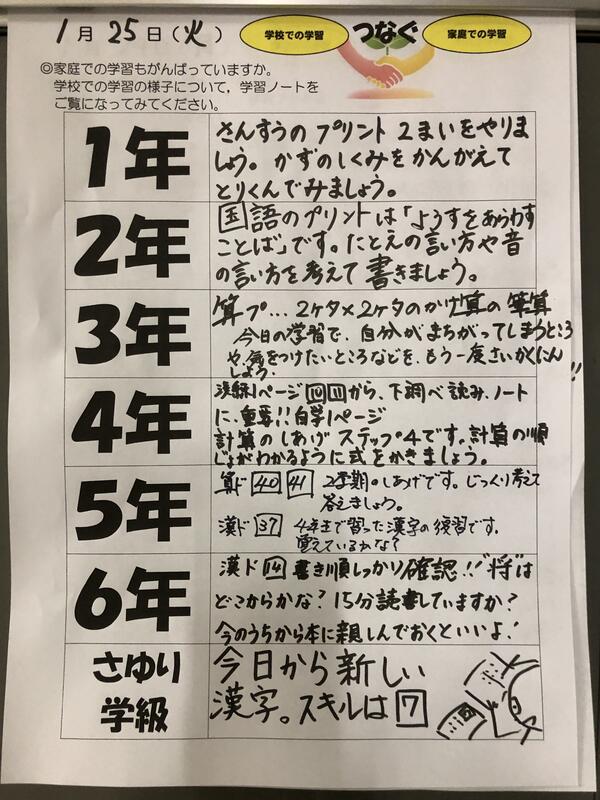 1月25日(火)
学校での学習 つなぐ 家庭での学習
◎家庭での学習もがんばっていますか。
学校での学習の様子について，学習ノートを
ご覧になってみてください。
1年
さんすうのプリント2まいをやりま
しょう。かずのしくみをかんがえて
とりくんでみましょう。
2年
国語のプリントは「ようすをあらわす
ことば」です。たとえの言い方や音
の言い方を考えて書きましょう。
3年
算プ…2ケタ×2ケタのかけ算の筆算
今日の学習で、自分がまちがってしまうところ
や、気をつけたいところなどを、もう一度さいかくにん
しよう。!!
4年
漢録1ページ 10 11 から、下調べ読み、ノート
に、重要!!自学1ページ
計算のしあげ ステップ4です。計算の順
じょがわかるように式をかきましょう。
5年
算ド 40 41 2学期のしあげです。じっくり考えて
答えましょう。
漢ド 37 4年生まで習った漢字の復習です。
覚えているかな?
6年
漢ド 14 書き順しっかり確認!!"将"は
どこからかな?15分読書していますか?
今のうちから本に親しんでおくといいよ!
さゆり
学級
今日から新しい
漢字。スキルは 7